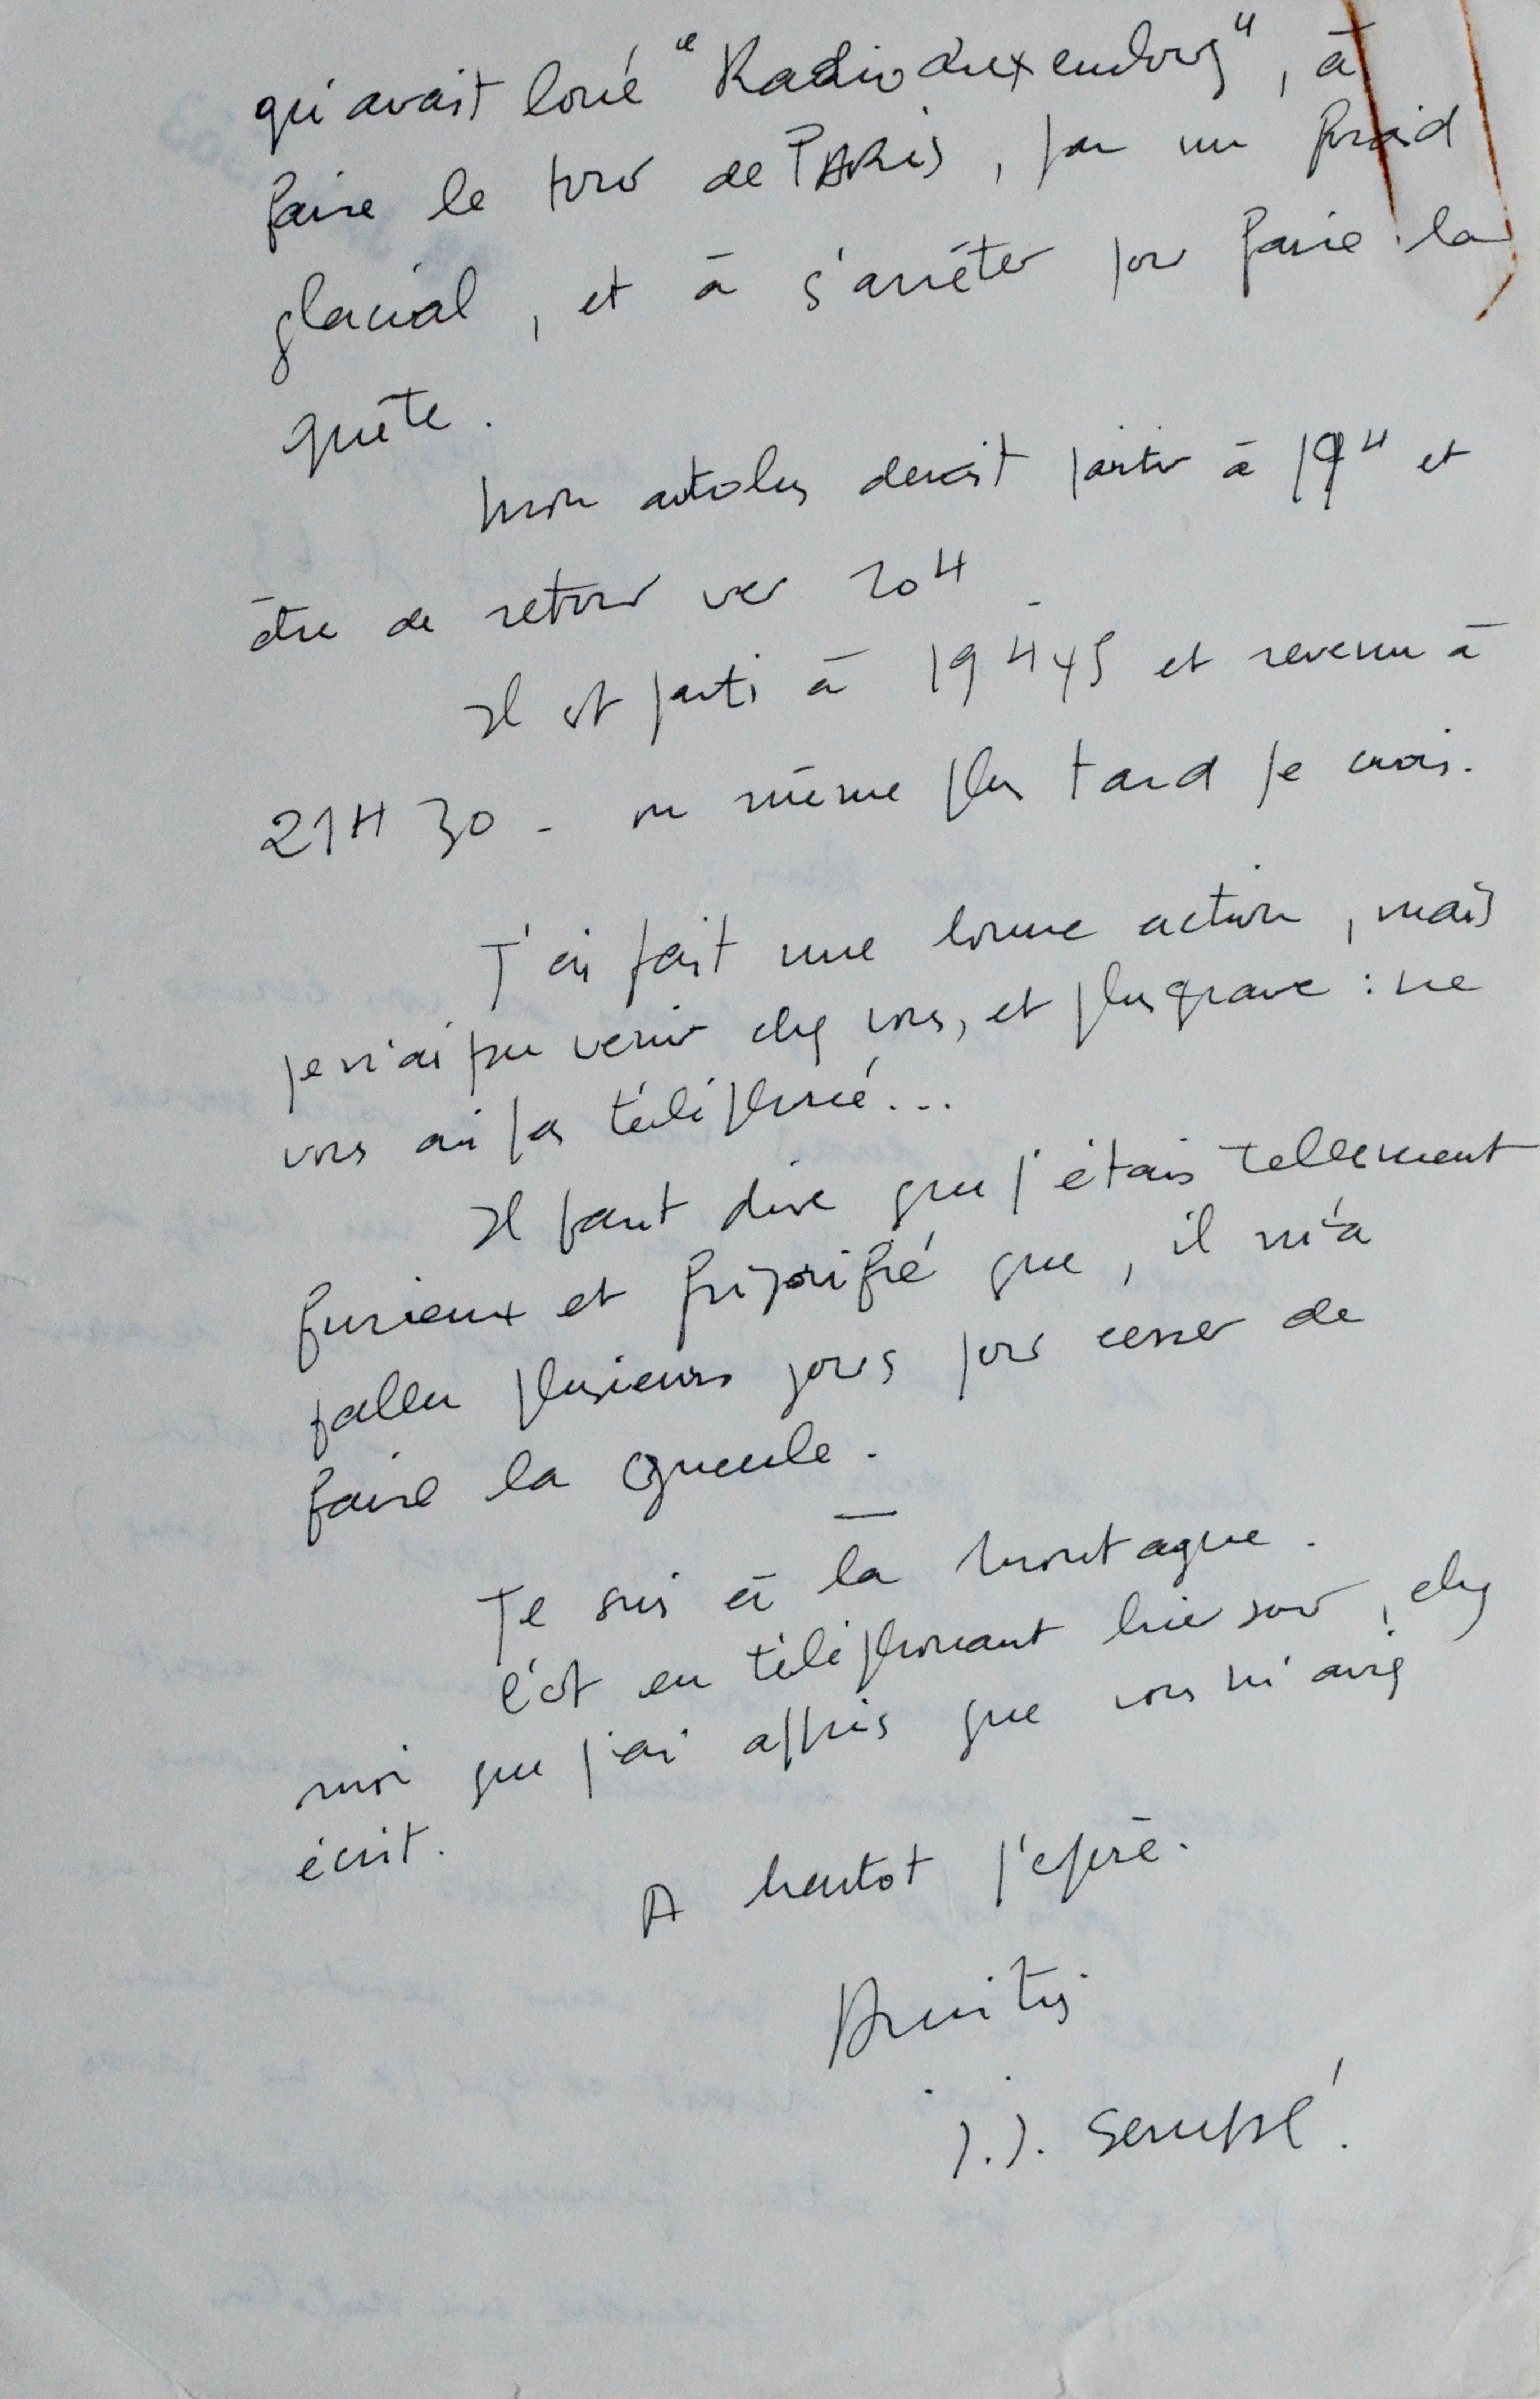 qui avait loué "Radio Luxembourg", à
faire le tour de PARIS, par un froid
glacial, et à s'arrêter pour faire la
quête.
Mon autobus devait partir à 19H et
être de retour vers 20H
Il est parti à 19H45 et revenu à
21H30 - ou même plus tard je crois.
J'ai fait une bonne action, mais
je n'ai pu venir chez vous, et plus grave : ne
vous ai pas téléphoné...
Il faut dire que j'étais tellement
furieux et frigorifié que, il m'a
fallu plusieurs jours pour cesser de
faire la gueule.
Je suis à la Montagne.
C'est en téléphonant hier soir, chez
moi que j'ai appris que vous m'aviez
écrit.
A bientot j'espère.
Amitiés
J.J. Sempé.